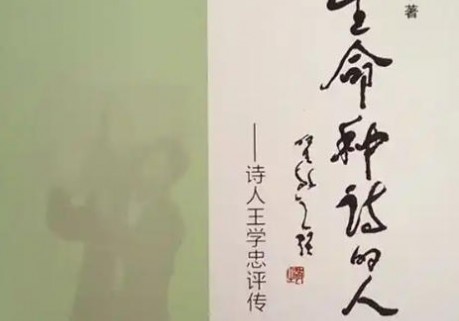 著
生命种诗的人
——诗人王学忠评传